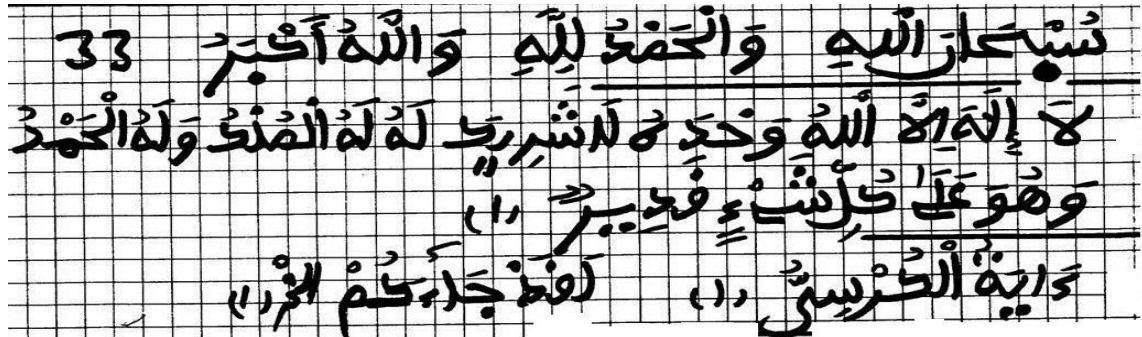 سُبْحَانَ اللهِ وَالْحَمْدُ لِلَّهِ وَاللَّهُ أَكْبَرُ 33
لاَ إِلَهَ إِلاَّ اللهُ وَحْدَهُ لَا شَرِيكَ لَهُ لَهُ الْمُلْكُ وَلَهُ الْحَمْدُ
وَهُوَ عَلَى كُلِّ شَيْءٍ قَدِيرٌ (1)
ءَايَةُ الْكُرْسِيِّ (1) لَقَدْ جَاءَكُمْ الخ (1)